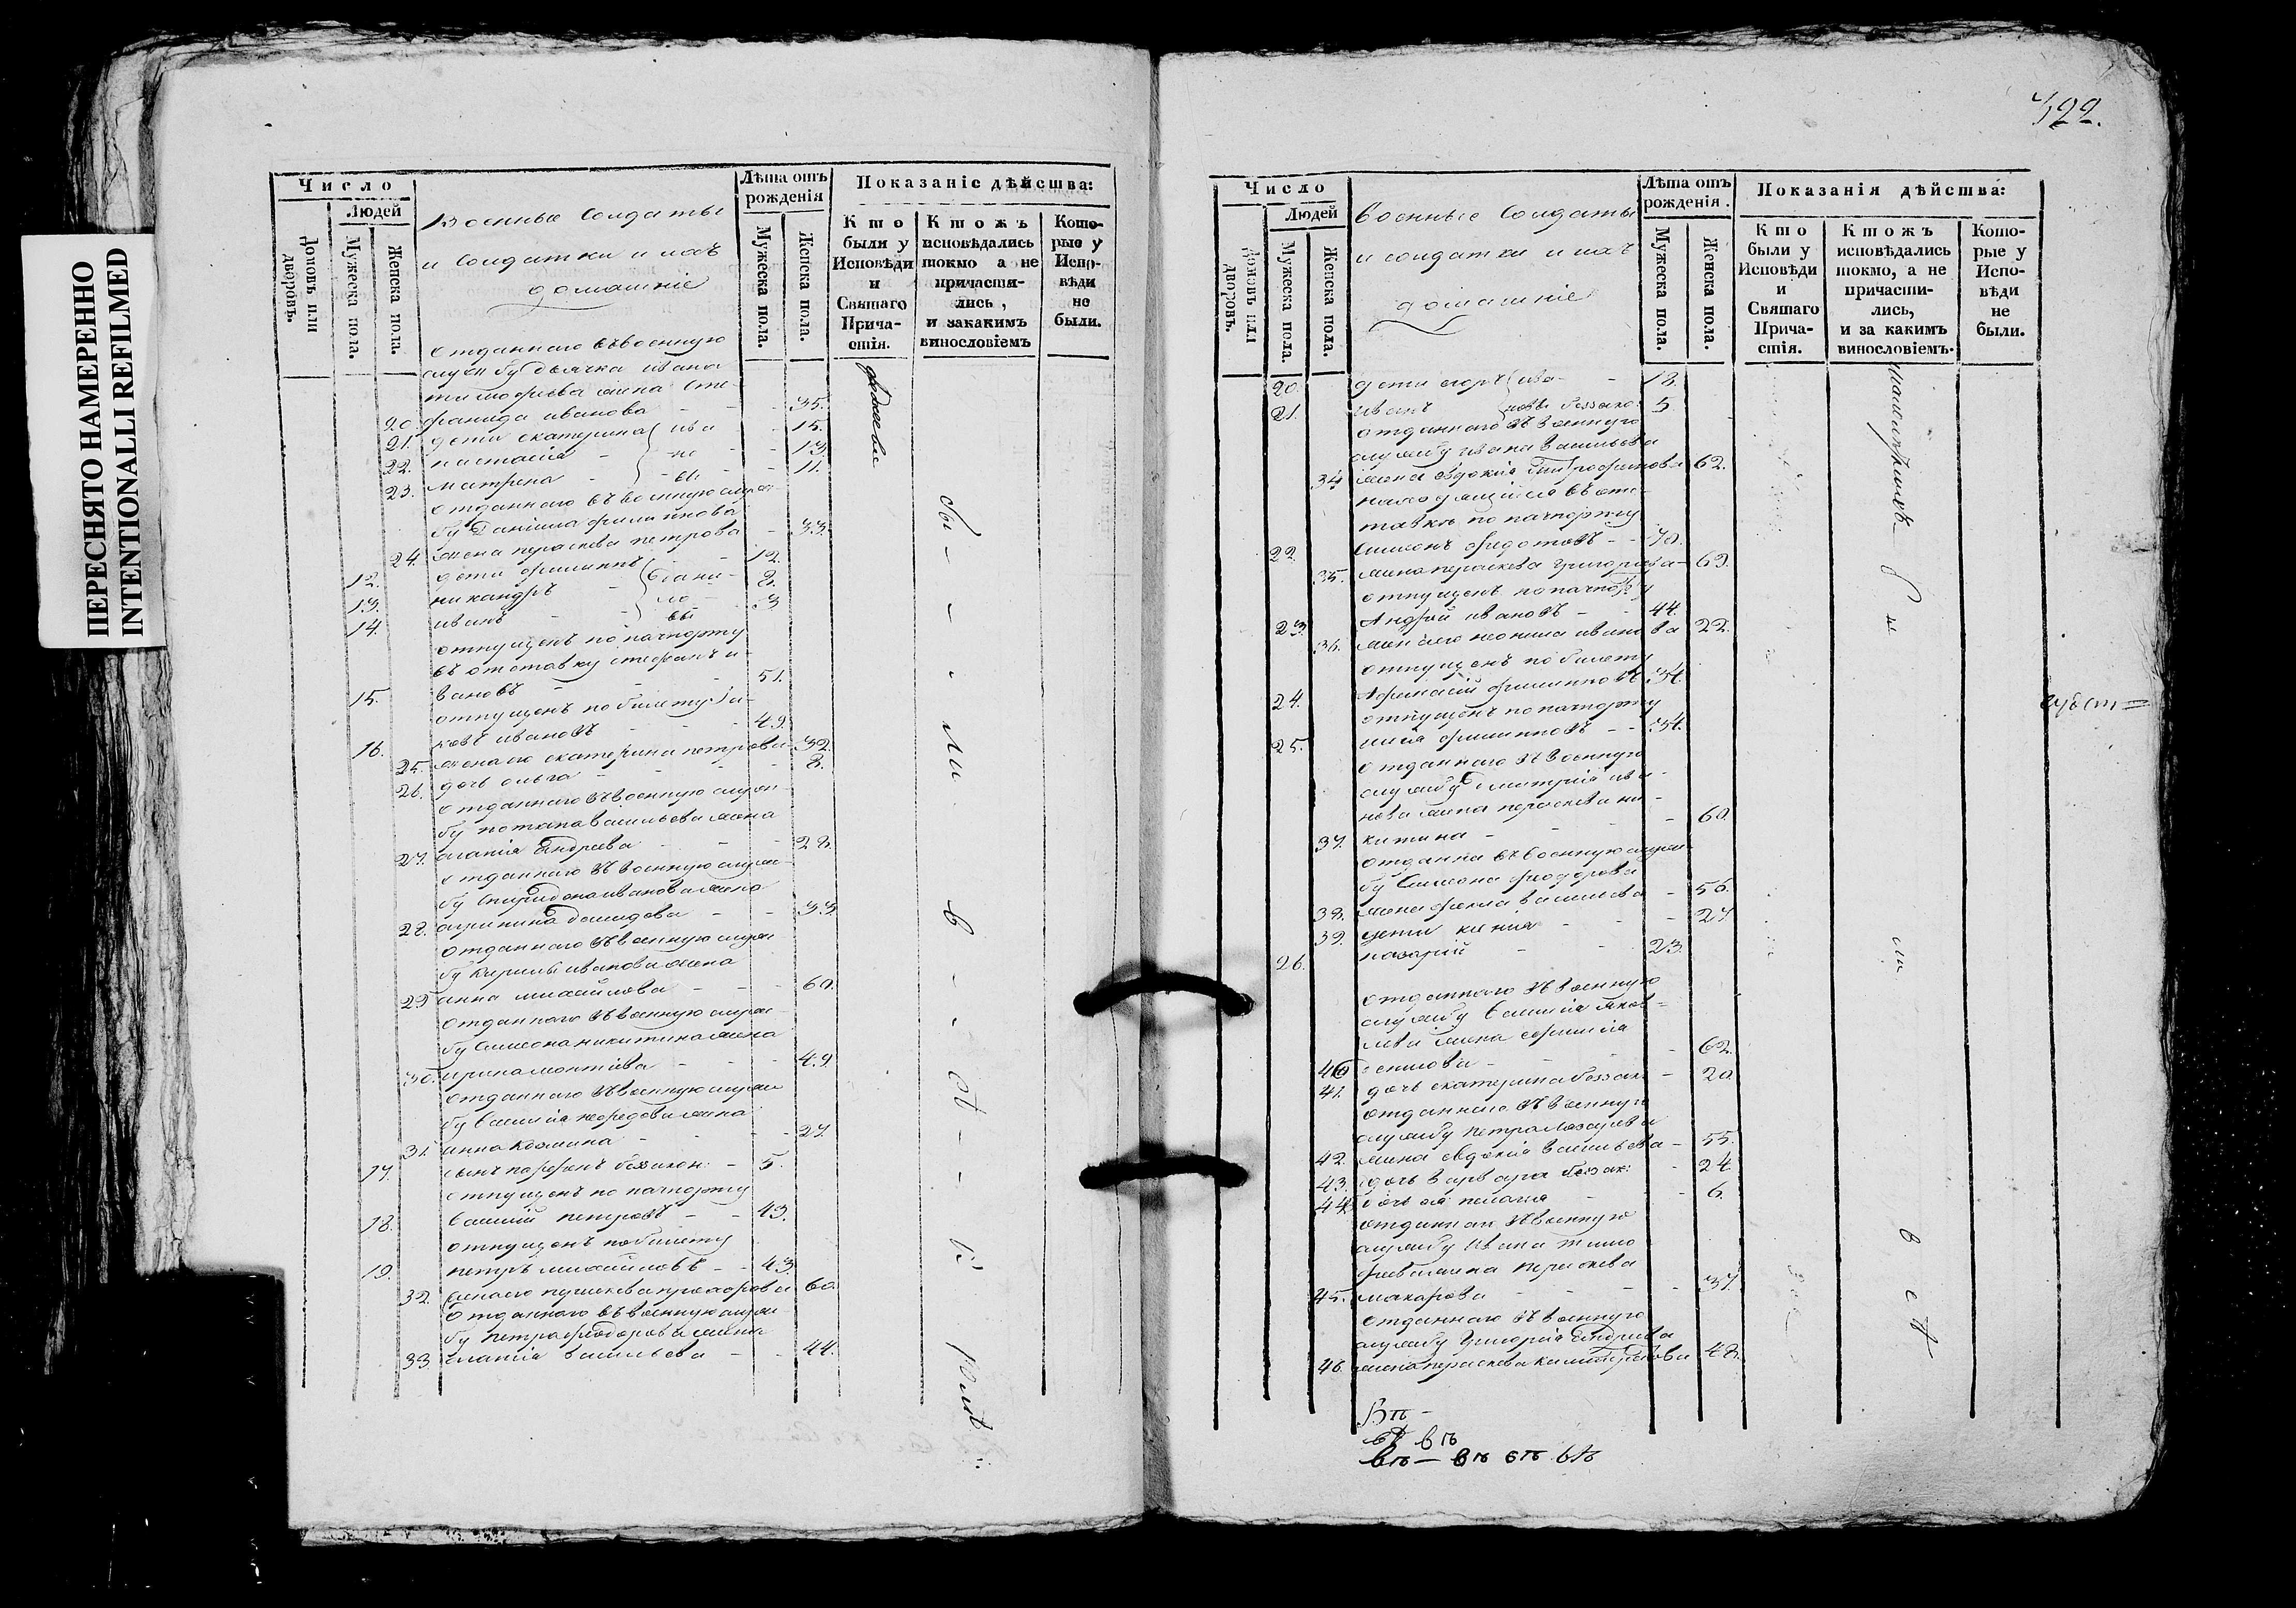 ПЕРЕСНЯТО НАМЕРЕННО
INTENTIONALLI REFILMED
Число
Людей
Домовъ или дворовъ.
Мужеска пола.
Женска пола.
Военные Солдаты
и Солдатки и ихъ
домашніе
Лѣта отъ рожденія
Мужеска пола.
Женска пола.
Показаніе дѣйства:
Кто были у Исповѣди и Святаго Причастія.
Ктожъ исповѣдались токмо а не причастились, и закакимъ винословіемъ
Которые у Исповѣди не были.
Отданнаго въ военную
службу дьячка ивана
тимофѣева жена Сте-
20. фанида иванова - - 35.
21. дети екатерина ива - 15.
22. настасія - но - 13.
23. матрена - вы - 11.
отданнаго въ военную служ-
бу Даніила филипова
24. жена параскева петрова - 33.
12. дети филиппъ Дани- 12.
13. никандръ - ло - 8.
14. иванъ - вы 3
отпущенъ по пачпорту
въ отставку стефанъ и-
15. вановъ - - 51.
отпущенъ по билету Я-
16. ковъ ивановъ - - 49.
25. жена его екатерина петрова 32.
26. дочь ольга - - 8.
отданнаго въ военную служ-
бу потапа васильева жена
27. агапія Андреева - 28.
отданнаго въ военную служ-
бу Спиридона иванова жена
28. акулина Демидова - - 33.
отданнаго въ военную служ
бу Кирилы иванова жена
29 анна михайлова - - - 60.
отданнаго въ военную служ
бу Симеона никитина жена
30. ирина - - 49
отданнаго въ военную служ
бу Василія жена
31. анна Козмина - - - 27.
17. сынъ парфенъ беззакон: - 5.
отпущенъ по пачпорту
18. Василій петровъ - - 43.
отпущенъ по билету
19. петръ михайловъ - - 43.
32. жена его прохорова 60.
Отданнаго въ военную служ
бу петра феодорова жена
33. агапія васильева - - 44.
бы - - - ли. в - - сѣ -
422.
Число
Людей
Домовъ или дворовъ.
Мужеска пола.
Женска пола.
Военные Солдаты
и солдатки и ихъ
домашніе
Лѣта отъ рожденія.
Мужеска пола.
Женска пола.
Показанія дѣйства:
Кто были у Исповѣди и Святаго Причастія.
Ктожъ исповѣдались токмо, а не причастились, и за какимъ винословіемъ.
Которые у Исповѣди не были.
20. дети егоръ ива- - 18.
21. иванъ новы беззако: 5
отданнаго въ военную
службу ивана васильева
34 жена евдокія 62.
находящійся въ отс-
тавке по пачпорту
22. Симеонъ федотовъ - - 70.
35. жена параскева григорьева - 69.
отпущенъ по пачпорту
23. Андрей ивановъ - - 44.
36. жена его неонила иванова 22.
отпущенъ по билету
24. Афанасій филипповъ 34.
отпущенъ по пачпорту
25. илія филипповъ - - 34.
отданнаго въ военную
службу Дмитрія ива-
нова жена параскева ни-
37. китина - - 60.
отданна въ военную служ-
бу Симеона феодорова
38. жена фекла васильева - 56.
39. дети ксенія - - 27.
26. назарій - - 23.
отданнаго въ военную
службу Василія Яков=
лева жена ефимія
40 - 62.
41. дочь екатерина беззак: - 20
отданнаго въ военную
службу петра Лазарева
42. жена евдокія васильева - 55.
43. дочь варвара беззак: - 24.
44. дочь ея пелагія - - 6.
отданнаго въ военную
службу ивана тимо
феева жена параскева
45. макарова - - - 37.
отданнаго въ военную
службу Григорія Андреева
46. жена параскева 48.
бы
ли
в сѣ
вп -
вп
вп - вп вп вп